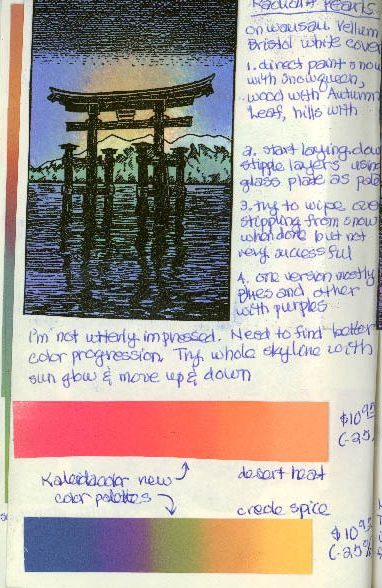 Radiant Pearls
on wausau Vellum
Bristol white cover
1. direct paint snow
with snowqueen,
wood with Autumn
Leaf, hills with
2. start laying down
stipple layers using
glass plate as pale
3. try to wipe over
stippling from snow
when done but not
very successful
4. one version mostly
and other
with purples
I'm not utterly impressed. Need to find better
color progression. Try whole skyline with
sun glow & move up & down
$10.95
(-25%
Kaleidacolor new
color palettes
desert heat
creole spice
$10.95
(-25%